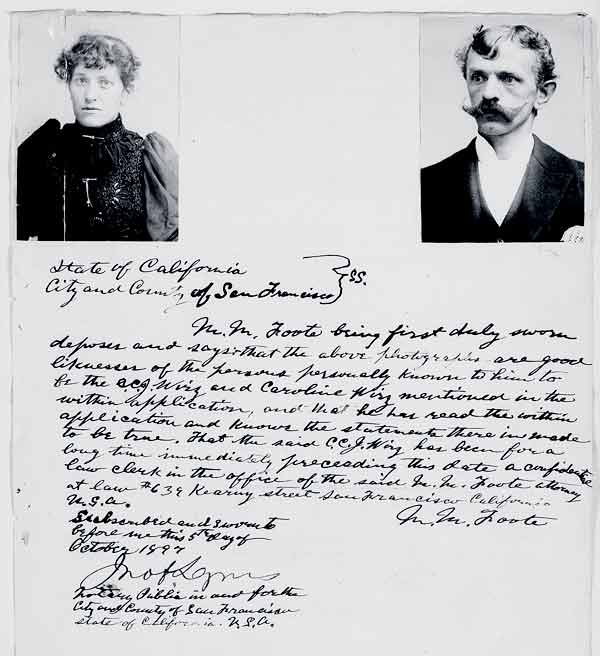 State of California
City and County of San Francisco } SS.
M. M. Foote being first duly sworn
deposes and says: that the above photographs are good
likenesses of the persons personally known to him to
be the C.C.J. Wirz and Caroline Wirz mentioned in the
within application, and that he has read the within
application and knows the statements therein made
to be true. That the said C.C.J. Wirz has been for a
long time immediately preceeding this date a confidential
law clerk in the office of the said M. M. Foote attorney
at law #639 Kearny street San Francisco California
U.S.A.
M. M. Foote
Subscribed and sworn to
before me this 5th day of
October 1897
Notary Public in and for the
City and County of San Francisco
state of California. U.S.A.